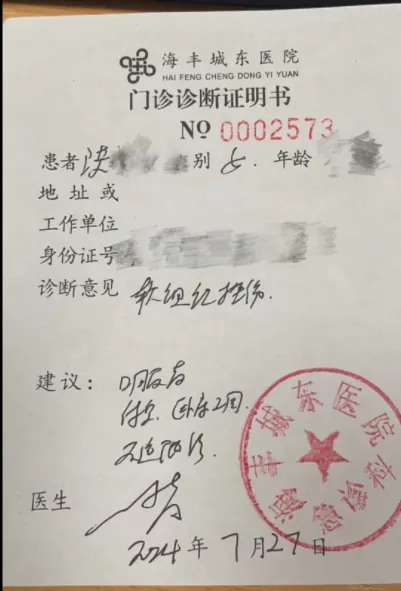 海丰城东医院
HAI FENG CHENG DONG YI YUAN
门诊诊断证明书
NO 0002573
患者 别 女. 年龄
地址或
工作单位
身份证号
诊断意见 软组织挫伤.
建议: 口服药
休息. 卧床2周.
不适随诊
医生
2024年7月27日
海丰城东医院
急诊科